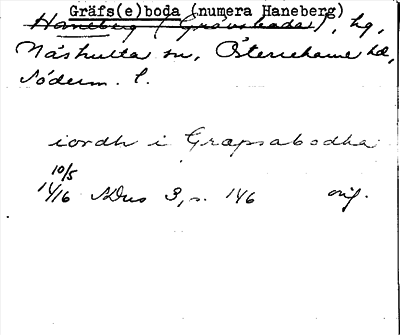 Gräfs(e)boda (numera Haneberg)
Haneberg (Grävsboda), hg,
Näshulta sn, Österrekarne hd,
Söderm. l.
iordh i Grapsabodha
10/5
14/16 ADus 3, s. 146 orig.